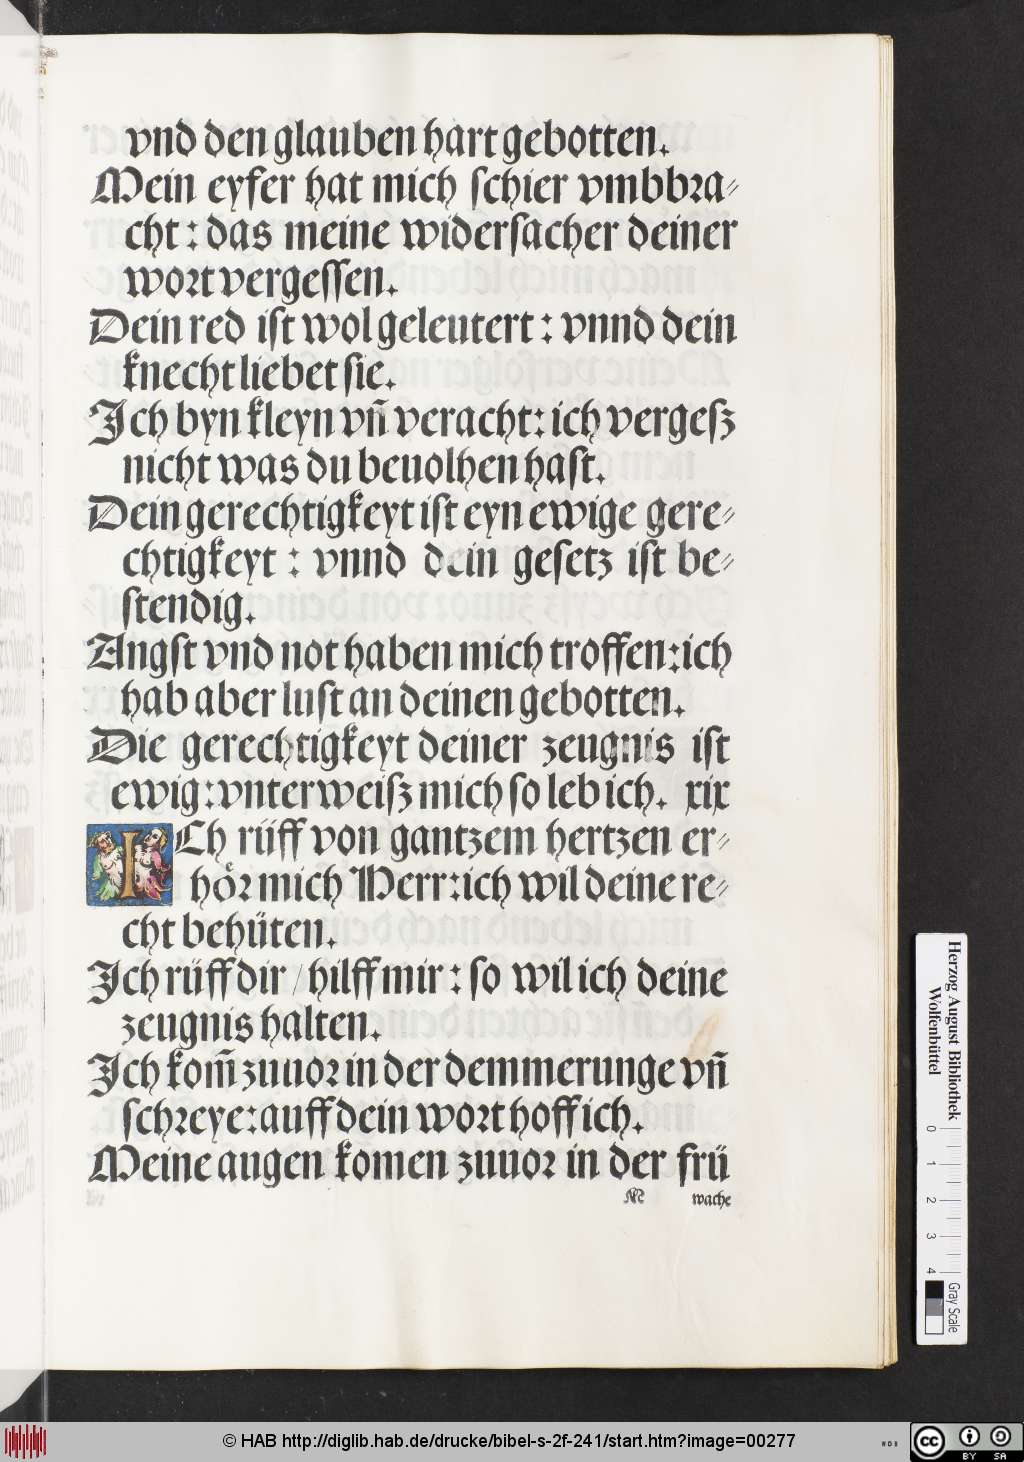 vnd den glauben hart gebotten.
Mein eyfer hat mich schier vmbbꝛa⸗
cht : das meine widersacher deiner
woꝛt vergessen.
Dein red ist wol geleutert : vnnd dein
knecht liebet sie.
Ich byn kleyn vn̄ veracht: ich vergesz
nicht was du beuolhen hast.
Dein gerechtigkeyt ist eyn ewige gere⸗
chtigkeyt : vnnd dein gesetz ist be⸗
stendig.
Angst vnd not haben mich troffen: ich
hab aber lust an deinen gebotten.
Die gerechtigkeyt deiner zeugnis ist
ewig: vnterweisz mich so leb ich. xix
ICh rüff von gantzem hertzen er⸗
höꝛ mich Herr: ich wil deine re⸗
cht behüten.
Ich rüff dir / hilff mir : so wil ich deine
zeugnis halten.
Ich kom̄ zuuoꝛ in der demmerunge vn̄
schꝛeye: auff dein woꝛt hoff ich.
Meine augen komen zuuoꝛ in der frü
M wache
Herzog August Bibliothek
Wolfenbüttel
0 1 2 3 4
Gray Scale
© HAB http://diglib.hab.de/drucke/bibel-s-2f-241/start.htm?image=00277
WDB
cc BY SA